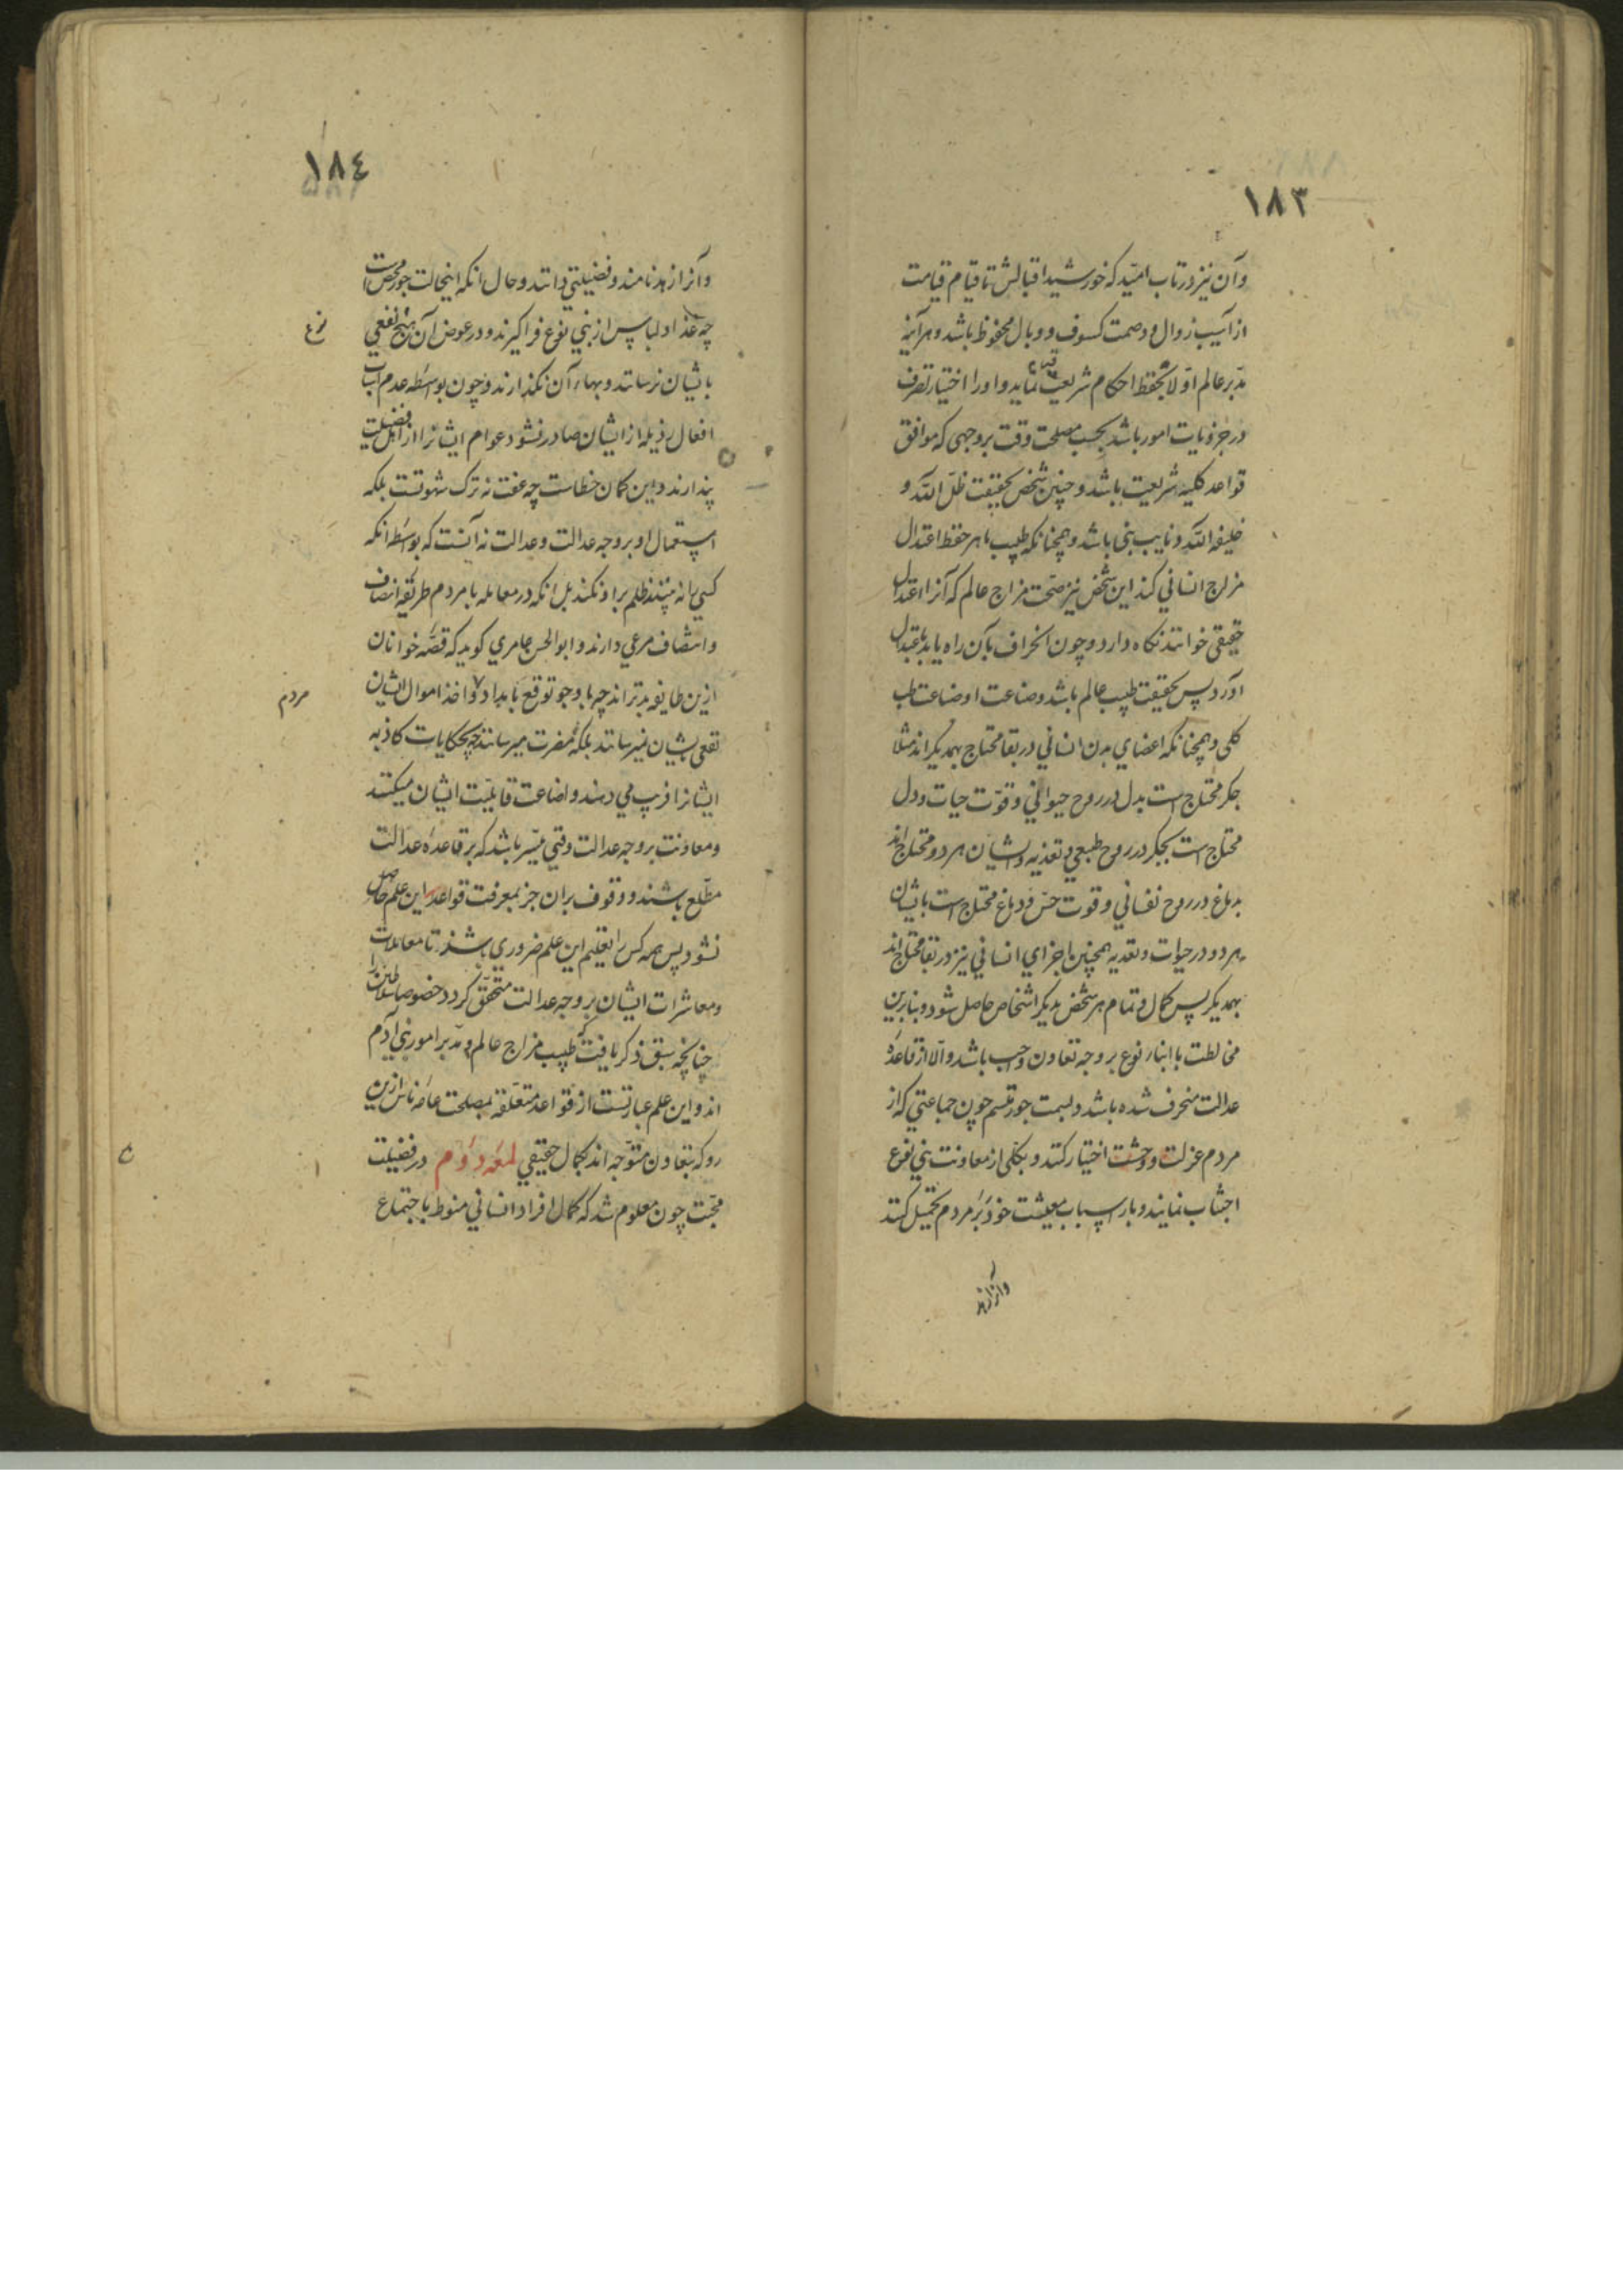 ١٨٣
وآن نیز درتاب امید که خورشید اقبالش تا قیام قیامت
از آسیب زوال و وصمت کسوف و وبال محفوظ باشد و هر آینه
مدبر عالم اولا بحفظ احکام شریعت قیام نماید و او را اختیار تصرف
در جزویات امور باشد بحسب مصلحت وقت بر وجهی که موافق
قواعد کلیه شریعت باشد و چنین شخص بحقیقت ظل الله و
خلیفه الله و نایب نبی باشد و همچنانکه طبیب ماهر حفظ اعتدال
مزاج انسانی کند این شخص نیز صحت مزاج عالم که آنرا اعتدال
حقیقی خوانند نگاه دارد و چون انحراف بآن راه یابد باعتدال
آورد پس بحقیقت طبیب عالم باشد و صناعت او صناعت طب
کلی و همچنانکه اعضای بدن انسانی در بقا محتاج بهمدیگراند مثلا
جگر محتاج است بدل در روح حیوانی و قوت حیات و دل
محتاج است بجگر در روح طبیعی و تغذیه و ایشان هر دو محتاج اند
بدماغ در روح نفسانی و قوت حس و دماغ محتاج است بایشان
هر دو در حیوات و تغذیه همچنین اجزای انسانی نیز در بقا محتاج اند
بهمدیگر پس کمال و تمام هر شخص بدیگر اشخاص حاصل شود و بنابرین
مخالطت با ابنای نوع بر وجه تعاون واجب باشد و الا از قاعده
عدالت منحرف شده باشد و بسمت جور متسم چون جماعتی که از
مردم عزلت و وحشت اختیار کنند و بکلی از معاونت بنی نوع
اجتناب نمایند و بار اسباب معیشت خود بر مردم تحمیل کنند
وآنرا زهد
١٨٤
وآنرا زهد نامند و فضیلتی دانند و حال آنکه اینحالت جور محض است
چه غذا و لباس از بنی نوع فرا گیرند و در عوض آن هیچ نفعی
نوع
بایشان نرسانند و بهاء آن نگذارند و چون بواسطه عدم اسباب
افعال رذیله از ایشان صادر نشود عوام ایشانرا از اهل فضیلت
پندارند و این گمان خطاست چه عفت نه ترک شهوتست بلکه
استعمال او بر وجه عدالت و عدالت نه آنست که بواسطه آنکه
کسی را نه بینند ظلم برا و نکنند بل آنکه در معامله با مردم طریقه انصاف
و انتصاف مرعی دارند و ابو الحسن عامری گوید که قصه خوانان
ازین طایفه بدتر اند چه با وجود توقع بامداد و اخذ اموال ایشان
مردم
نفعی بایشان نمیرسانند بلکه مضرت میرسانند چه بحکایات کاذبه
ایشانرا فریب می دهند و اضاعت قابلیت ایشان میکنند
و معاونت بر وجه عدالت وقتی میسر باشد که بر قاعده عدالت
مطلع باشند و وقوف بران جز بمعرفت قواعد این علم حاصل
نشود پس همه کس را تعلیم این علم ضروری باشد تا معاملات
و معاشرات ایشان بر وجه عدالت متحقق گردد خصوصا سلاطین را
چنانچه سبق ذکر یافت که طبیب مزاج عالم و مدبر امور بنی آدم
اند و این علم عبارتست از قواعد متعلقه بمصلحت عامه ناس ازین
رو که بتعاون متوجه اند بکمال حقیقی لمعه دوم در فضیلت
محبت چون معلوم شد که کمال افراد انسانی منوط باجتماع